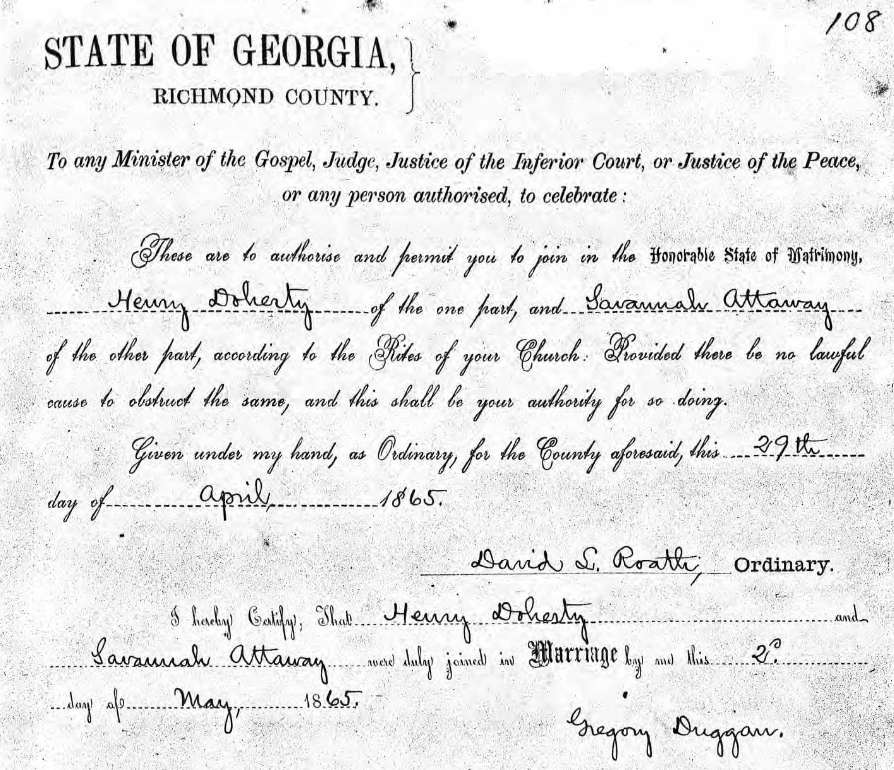 108
STATE OF GEORGIA,
RICHMOND COUNTY.
To any Minister of the Gospel, Judge, Justice of the Inferior Court, or Justice of the Peace,
or any person authorised, to celebrate:
These are to authorise and permit you to join in the Honorable State of Matrimony,
Henry Doherty of the one part, and Savannah Attaway
of the other part, according to the Rites of your Church: Provided there be no lawful
cause to obstruct the same, and this shall be your authority for so doing.
Given under my hand, as Ordinary, for the County aforesaid, this 29th
day of April, 1865.
David L. Roath, Ordinary.
I hereby Certify, That Henry Doherty and
Savannah Attaway were duly joined in Marriage by me this 2d
day of May, 1865.
Gregory Duggan.